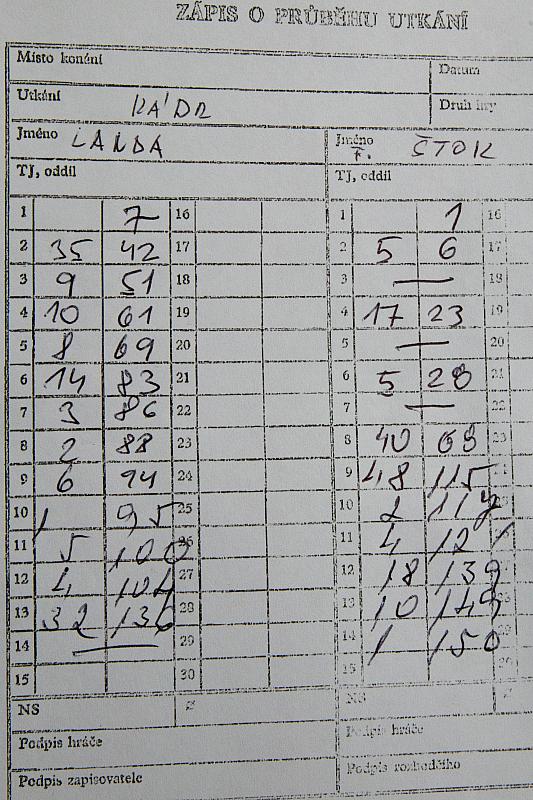 ZÁPIS O PRŮBĚHU UTKÁNÍ
Místo konání Datum
Utkání KÁDR Druh hry
Jméno LANDA Jméno F. ŠTOK
TJ, oddíl TJ, oddíl
1 7 16 1 1 16
2 35 42 17 2 5 6 17
3 9 51 18 3 — 18
4 10 61 19 4 17 23 19
5 8 69 20 5 — 20
6 14 83 21 6 5 28 21
7 3 86 22 7 — 22
8 2 88 23 8 40 68 23
9 6 94 24 9 48 115
10 1 95 25 10 2 117
11 5 100 26 11 4 121
12 4 104 27 12 18 139
13 32 136 28 13 10 149
14 — 29 14 1 150
15 30 15
NS NS
Podpis hráče Podpis hráče
Podpis zapisovatele Podpis rozhodčího